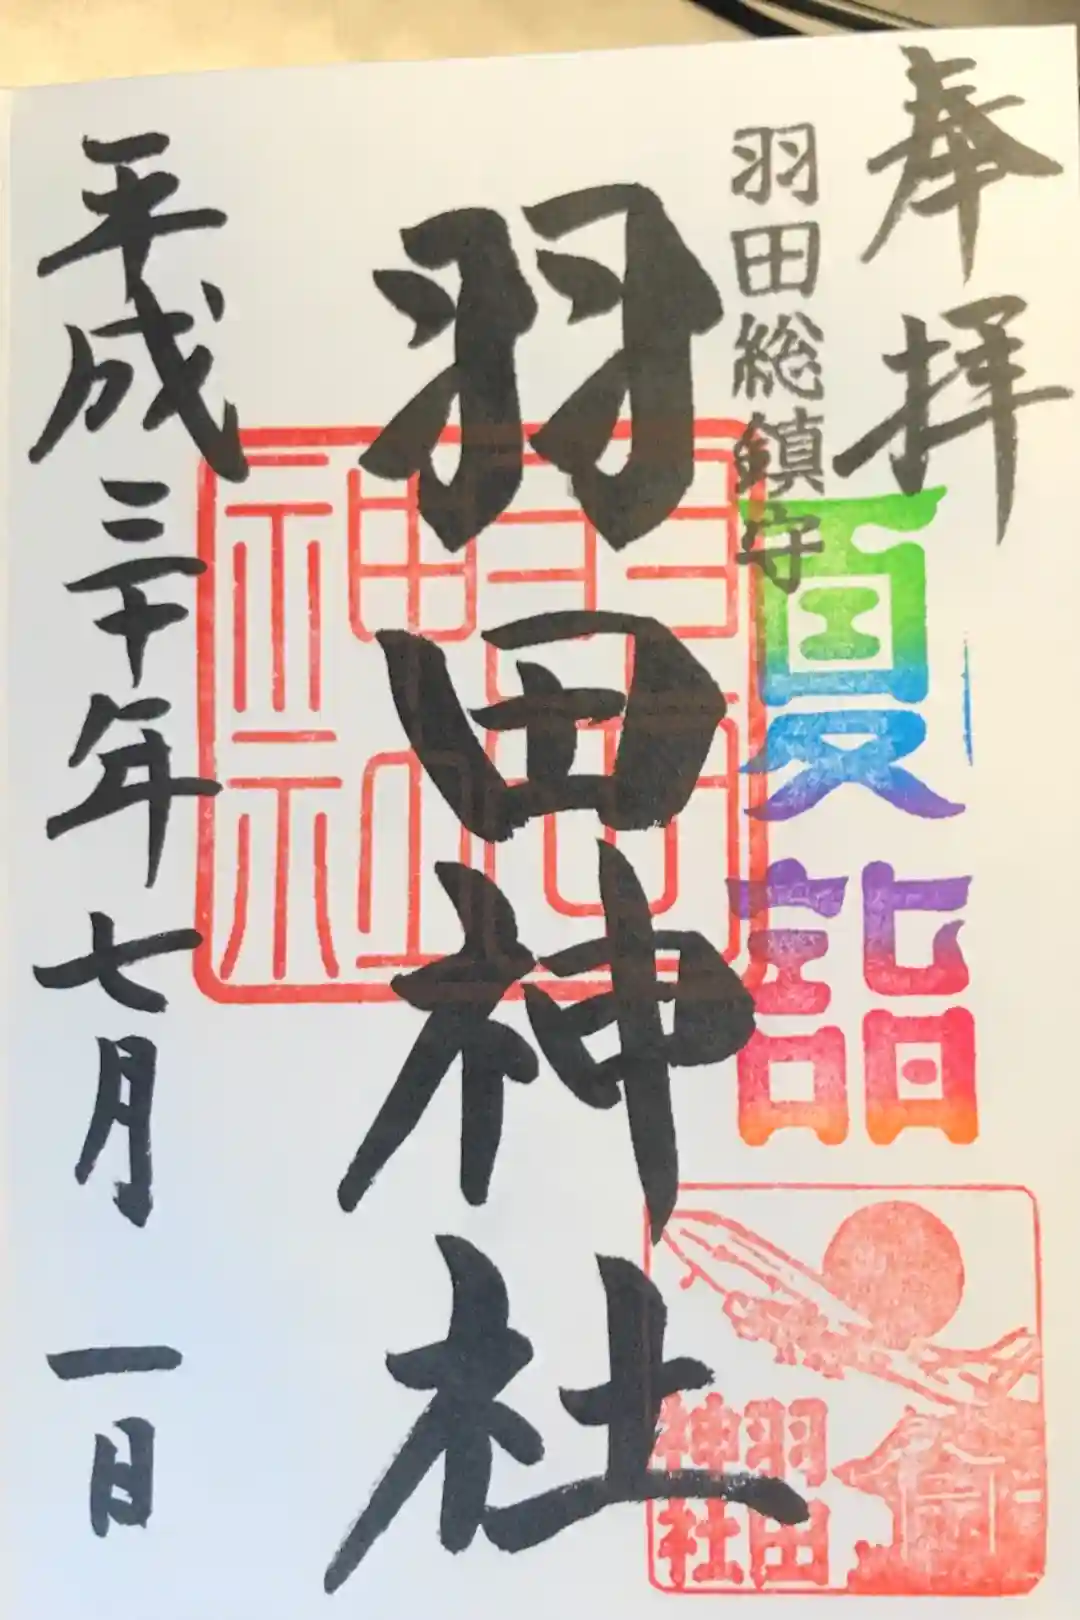 奉拝
羽田総鎮守
夏詣
羽田神社
羽田神社
平成三十年七月一日
羽田
神社